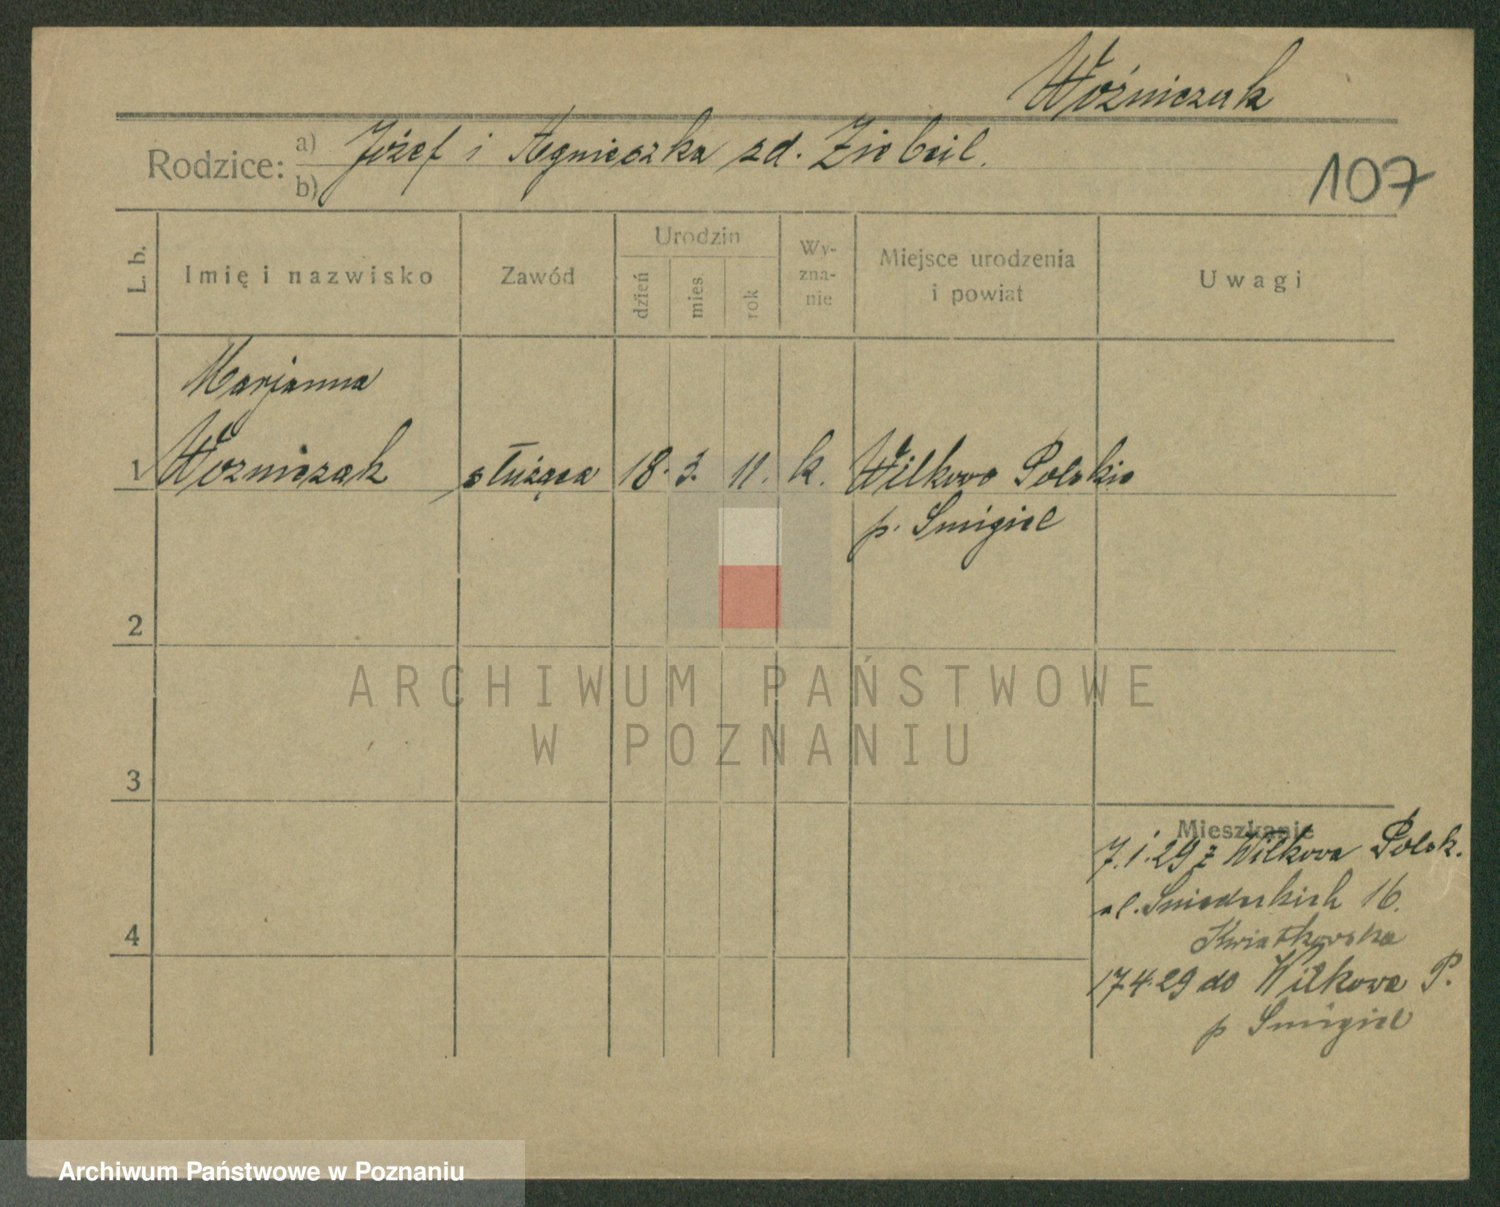 Woźniczak
Rodzice: a) Józef i Agnieszka zd. Ziebeil.
b)
107
L. b.
Imię i nazwisko
Zawód
Urodzin
dzień
mies.
rok
Wy-
zna-
nie
Miejsce urodzenia
i powiat
Uwagi
Marjanna
1 Wozniczak służąca 18. 3. 11. k. Wilkowo Polskie
p. Smigiel
2
ARCHIWUM PAŃSTWOWE
W POZNANIU
3
Mieszkanie
7.1.29 z Wilkowa Polsk.
ul. Sniadeckich 16.
4
Kwiatkowska
17.4.29 do Wilkowa P.
p Smigiel
Archiwum Państwowe w Poznaniu